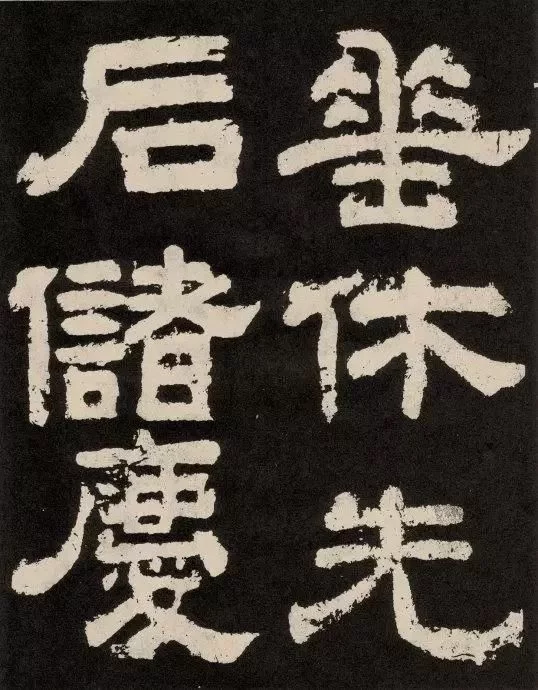 垂休先
后儲慶